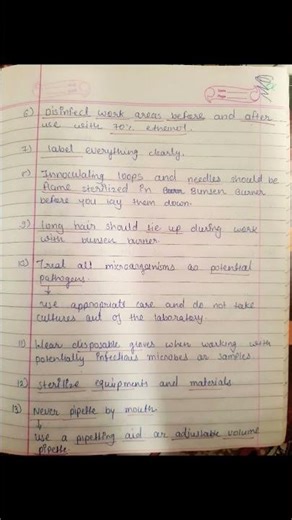 6) Disinfect work areas before and after
use with 70% ethanol.
7) label everything clearly.
8) Innoculating loops and needles should be
flame sterilized in Bunsen Burner
before you lay them down.
9) long hair should tie up during work
with bunsen burner
10) Treat all microorganisms as potential
pathogens.
↓
use appropriate care and do not take
cultures out of the laboratory
11) Wear disposable gloves when working with
potentially infectious microbes or samples
12) sterilize equipments and materials
13) Never pipette by mouth
↓
use a pipetting aid or adjustable volume
pipette.